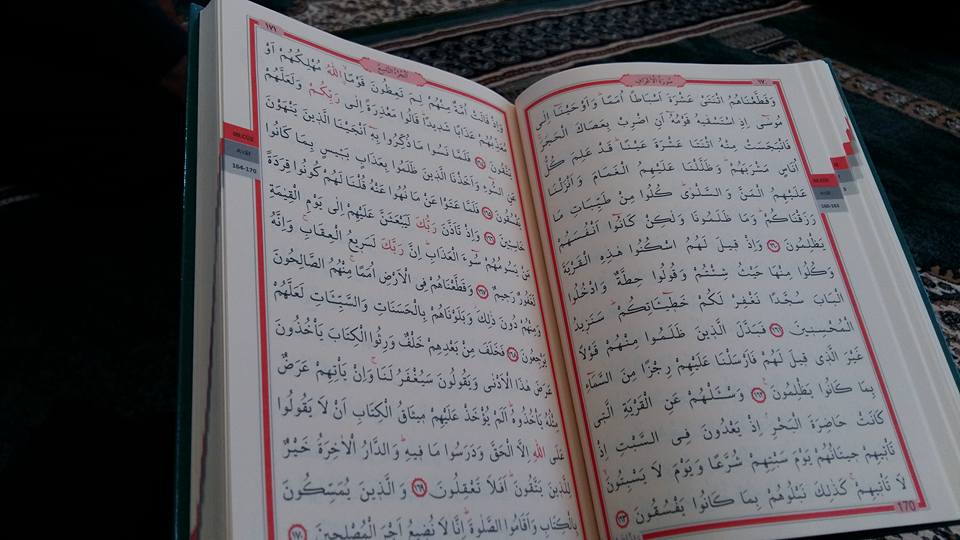 ١٧٠
سورة الاعراف
وَقَطَّعْنَاهُمُ اثْنَتَىْ عَشْرَةَ اَسْبَاطًا اُمَمًا وَاَوْحَيْنَا اِلٰى
مُوسٰى اِذِ اسْتَسْقٰيهُ قَوْمُهُ اَنِ اضْرِبْ بِعَصَاكَ الْحَجَرَ
فَانْبَجَسَتْ مِنْهُ اثْنَتَا عَشْرَةَ عَيْنًا قَدْ عَلِمَ كُلُّ
اُنَاسٍ مَشْرَبَهُمْ وَظَلَّلْنَا عَلَيْهِمُ الْغَمَامَ وَاَنْزَلْنَا
عَلَيْهِمُ الْمَنَّ وَالسَّلْوٰى كُلُوا مِنْ طَيِّبَاتِ مَا
رَزَقْنَاكُمْ وَمَا ظَلَمُونَا وَلٰكِنْ كَانُوا اَنْفُسَهُمْ
يَظْلِمُونَ ١٦٠ وَاِذْ قِيلَ لَهُمُ اسْكُنُوا هٰذِهِ الْقَرْيَةَ
وَكُلُوا مِنْهَا حَيْثُ شِئْتُمْ وَقُولُوا حِطَّةٌ وَادْخُلُوا
الْبَابَ سُجَّدًا نَغْفِرْ لَكُمْ خَطِيـَٔاتِكُمْ سَنَزِيدُ
الْمُحْسِنِينَ ١٦١ فَبَدَّلَ الَّذِينَ ظَلَمُوا مِنْهُمْ قَوْلًا
غَيْرَ الَّذِى قِيلَ لَهُمْ فَاَرْسَلْنَا عَلَيْهِمْ رِجْزًا مِنَ السَّمَاءِ
بِمَا كَانُوا يَظْلِمُونَ ١٦٢ وَسْـَٔلْهُمْ عَنِ الْقَرْيَةِ الَّتِى
كَانَتْ حَاضِرَةَ الْبَحْرِ اِذْ يَعْدُونَ فِى السَّبْتِ اِذْ
تَأْتِيهِمْ حِيتَانُهُمْ يَوْمَ سَبْتِهِمْ شُرَّعًا وَيَوْمَ لَا يَسْبِتُونَ
لَا تَأْتِيهِمْ كَذٰلِكَ نَبْلُوهُمْ بِمَا كَانُوا يَفْسُقُونَ ١٦٣
170
160-163
١٧١
الجزء التاسع
وَاِذْ قَالَتْ اُمَّةٌ مِنْهُمْ لِمَ تَعِظُونَ قَوْمًا اللّٰهُ مُهْلِكُهُمْ اَوْ
مُعَذِّبُهُمْ عَذَابًا شَدِيدًا قَالُوا مَعْذِرَةً اِلٰى رَبِّكُمْ وَلَعَلَّهُمْ
يَتَّقُونَ ١٦٤ فَلَمَّا نَسُوا مَا ذُكِّرُوا بِهِ اَنْجَيْنَا الَّذِينَ يَنْهَوْنَ
عَنِ السُّوءِ وَاَخَذْنَا الَّذِينَ ظَلَمُوا بِعَذَابٍ بَـِٔيسٍ بِمَا كَانُوا
يَفْسُقُونَ ١٦٥ فَلَمَّا عَتَوْا عَنْ مَا نُهُوا عَنْهُ قُلْنَا لَهُمْ كُونُوا قِرَدَةً
خَاسِـِٔينَ ١٦٦ وَاِذْ تَاَذَّنَ رَبُّكَ لَيَبْعَثَنَّ عَلَيْهِمْ اِلٰى يَوْمِ الْقِيٰمَةِ
مَنْ يَسُومُهُمْ سُوءَ الْعَذَابِ اِنَّ رَبَّكَ لَسَرِيعُ الْعِقَابِ وَاِنَّهُ
لَغَفُورٌ رَحِيمٌ ١٦٧ وَقَطَّعْنَاهُمْ فِى الْاَرْضِ اُمَمًا مِنْهُمُ الصَّالِحُونَ
وَمِنْهُمْ دُونَ ذٰلِكَ وَبَلَوْنَاهُمْ بِالْحَسَنَاتِ وَالسَّيِّـَٔاتِ لَعَلَّهُمْ
يَرْجِعُونَ ١٦٨ فَخَلَفَ مِنْ بَعْدِهِمْ خَلْفٌ وَرِثُوا الْكِتَابَ يَأْخُذُونَ
عَرَضَ هٰذَا الْاَدْنٰى وَيَقُولُونَ سَيُغْفَرُ لَنَا وَاِنْ يَأْتِهِمْ عَرَضٌ
مِثْلُهُ يَأْخُذُوهُ اَلَمْ يُؤْخَذْ عَلَيْهِمْ مِيثَاقُ الْكِتَابِ اَنْ لَا يَقُولُوا
عَلَى اللّٰهِ اِلَّا الْحَقَّ وَدَرَسُوا مَا فِيهِ وَالدَّارُ الْاٰخِرَةُ خَيْرٌ
لِلَّذِينَ يَتَّقُونَ اَفَلَا تَعْقِلُونَ ١٦٩ وَالَّذِينَ يُمَسِّكُونَ
بِالْكِتَابِ وَاَقَامُوا الصَّلٰوةَ اِنَّا لَا نُضِيعُ اَجْرَ الْمُصْلِحِينَ ١٧٠
09.CÜZ
AYAT
164-170